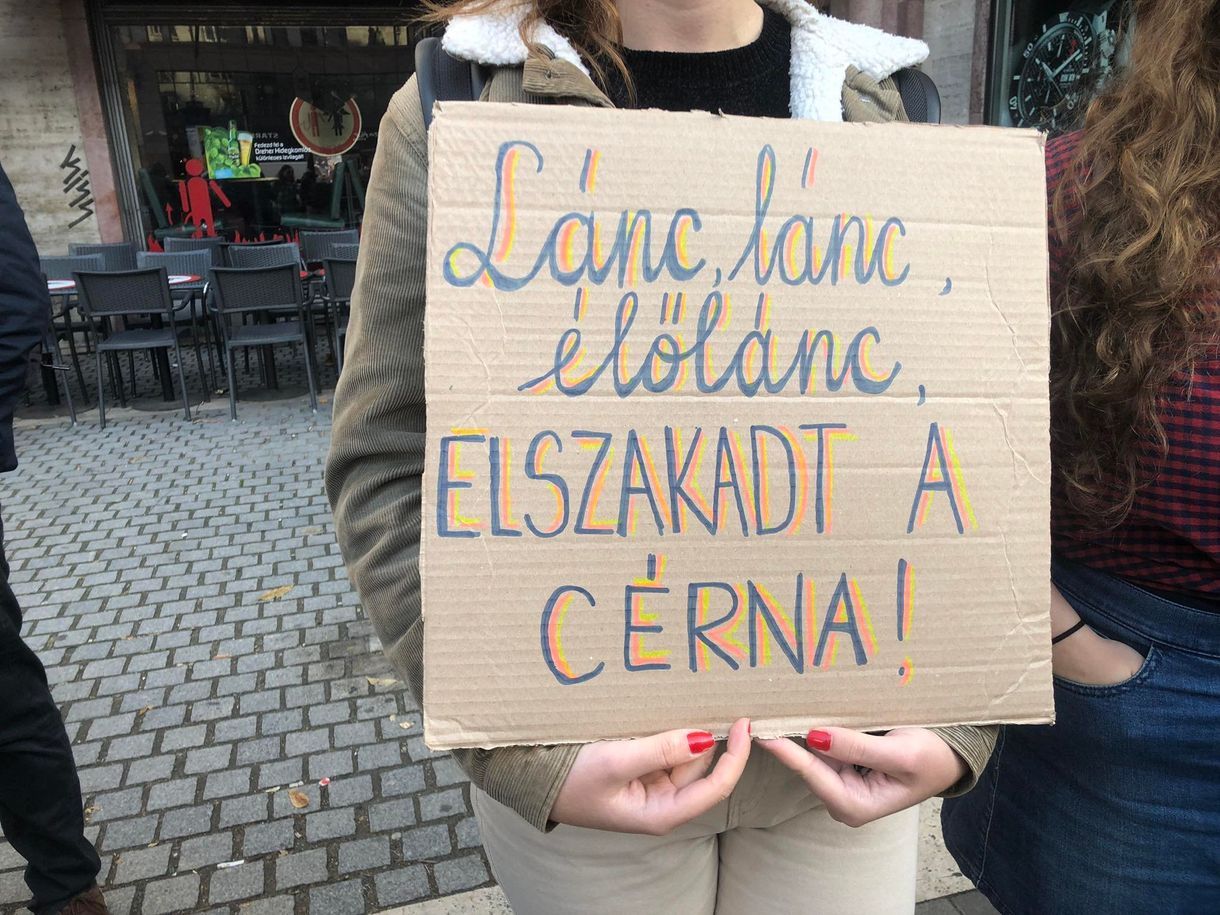 Lánc, lánc,
élőlánc,
ELSZAKADT A
CÉRNA!
Fedezd fel a
Dreher Hidegkomlós
különleges ízvilágát!